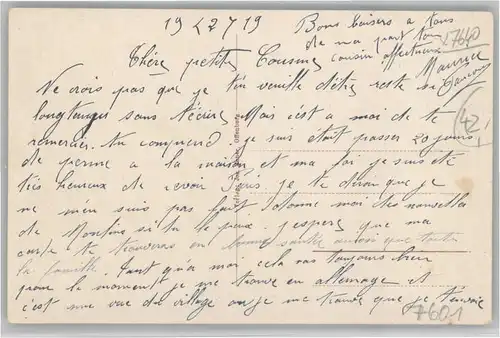 19 2 7 19
Bons baisers a tous
de ma part ton
cousin affectueux
Maurice
27640
Chère petite Cousine
Ne crois pas que je t'en veuille d'être reste si
longtemps sans t'écrire Mais c'est a moi de te
remercier. tu comprend je suis etait passer 20 jours
de perme a la maison et ma foi je suis été
très heureux de revoir Paris je te dirai que je
ne m'en suis pas fait donne moi des nouvelles
de si tu le peux. j'espère que ma
carte te trouvera en bonne santée ainsi que toute
la famille. Tant qu'a moi cela va toujours bien
pour le moment je me trouve en allemagne et
c'est une vue du village ou je me trouve que je t'envoie
42
7601